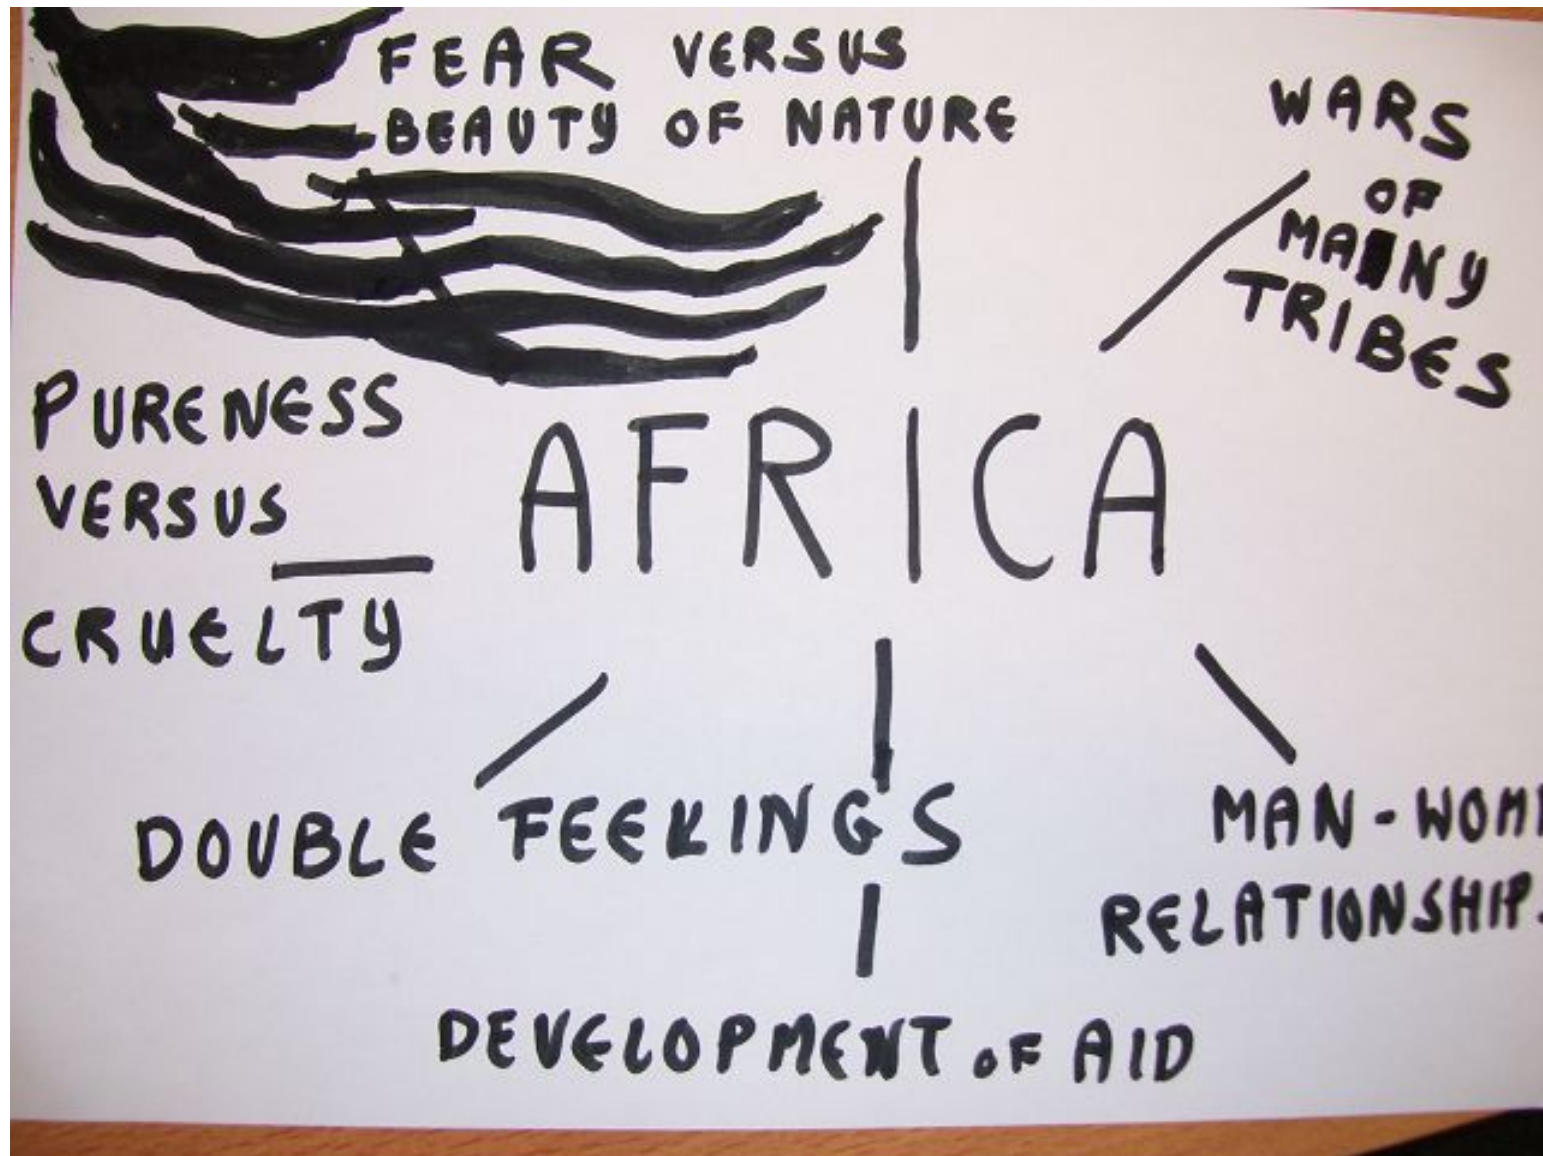 FEAR VERSUS
BEAUTY OF NATURE
WARS
OF
MANY
TRIBES
PURENESS
VERSUS
CRUELTY
AFRICA
DOUBLE FEELINGS
MAN-WOM
RELATIONSHIP
DEVELOPMENT OF AID